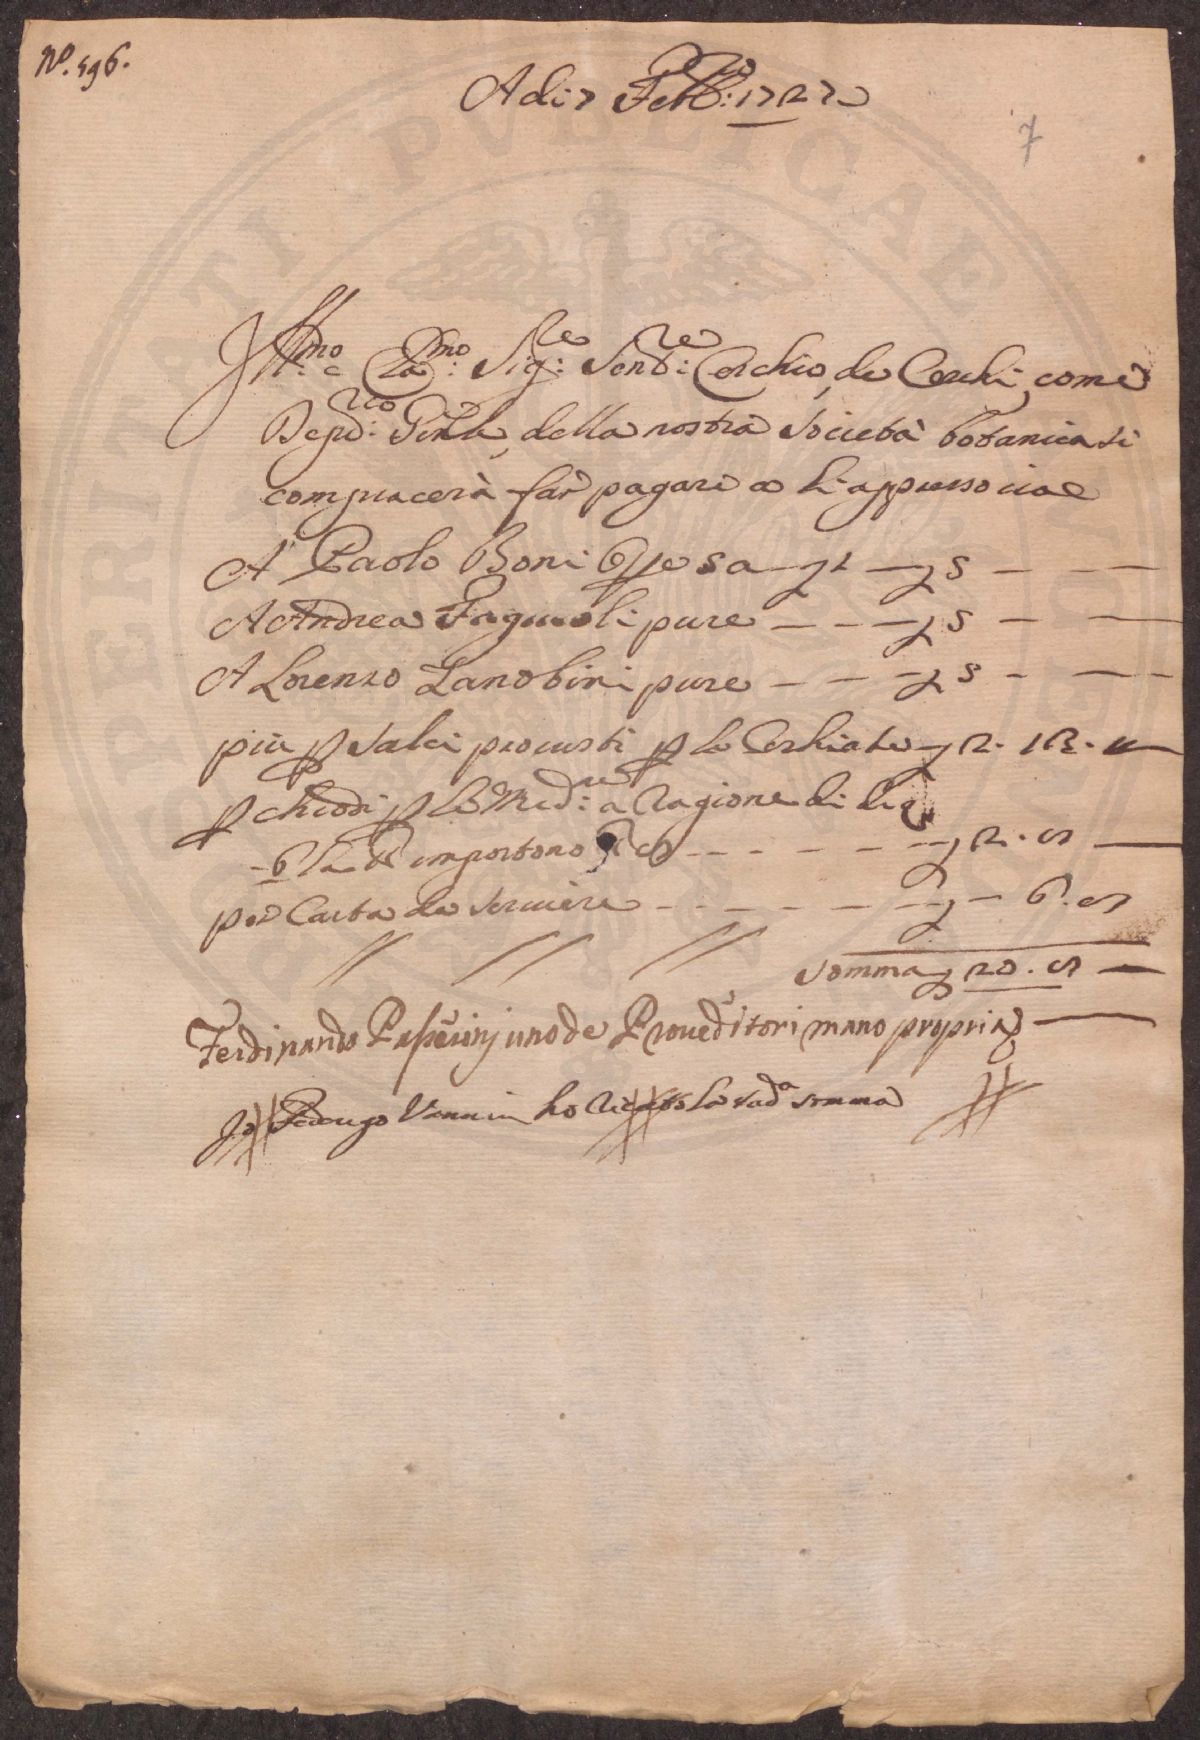 N.º 596.
Adi 7 Febb:ro 1727
7
Ill:mo e Cla:mo Sig:re Send:re Cerchio, de Cerchi, come
Depo:rio Gñle, della nostra Società botanica si
compiacerà far pagare a li appresso cioe
A Paolo Boni Opre 5 a
A Andrea Fagiuoli pure
A Lorenzo Zanobini pure
più p Salci procusti p le Cerchiate 2. 13. 4
p chiodi p le Med:me a Ragione di
importono
per Carta da Scrivere 6. 8
Somma 20. 8
Ferdinando Paperinj uno de Proueditori mano propria
Io Federigo Vannini ho riceuto la sud.a somma
SALUTI PUBLICAE